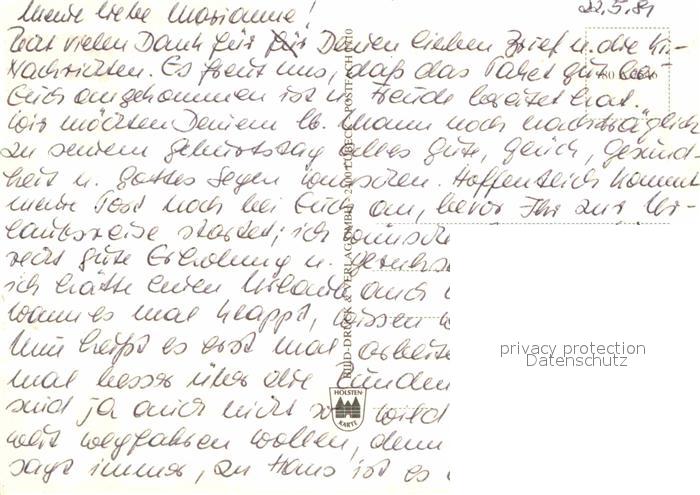 Meine liebe Marianne!
22.5.81
Recht vielen Dank für Deinen lieben Brief u. die
Nachrichten. Es freut uns, daß das Paket gut bei
Euch angekommen ist u. Freude bereitet hat.
Wir möchten Deinem lb. Mann noch nachträglich
zu seinem Geburtstag alles Gute, Glück, Gesund-
heit u. Gottes Segen wünschen. Hoffentlich kommt
meine Post noch bei Euch an, bevor Ihr zur Ur-
laubsreise startet; ich wünsche
recht gute Erholung u.
ich hätte einen Urlaub auch
wann es mal klappt, wissen
Nun heißt es erst mal arbeite
mal besser über die Runden
sind ja auch nicht so wild
weit wegfahren wollen, denn
sagt immer, zu Haus ist es
BILD-DRUCK & VERLAG GMBH, 2400 LÜBECK, POSTFACH
HOLSTEN-
KARTE
privacy protection
Datenschutz